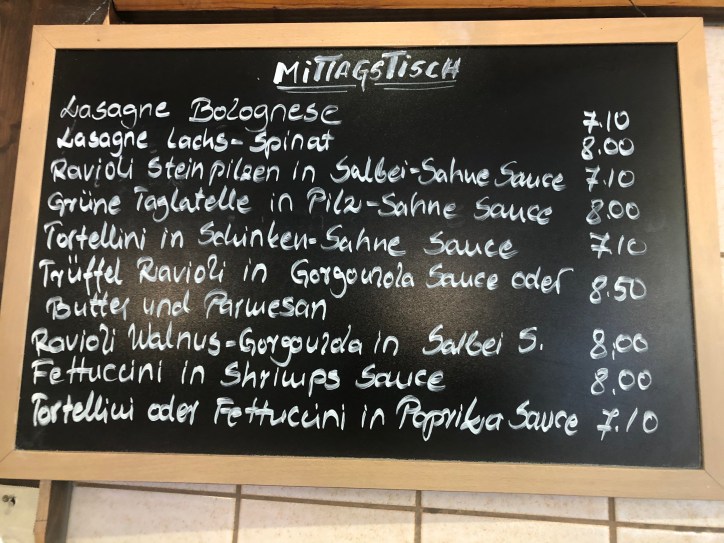 MITTAGSTISCH
Lasagne Bolognese 7.10
Lasagne Lachs-Spinat 8.00
Ravioli Steinpilzen in Salbei-Sahne Sauce 7.10
Grüne Taglatelle in Pilz-Sahne Sauce 8.00
Tortellini in Schinken-Sahne Sauce 7.10
Trüffel Ravioli in Gorgonzola Sauce oder 8.50
Butter und Parmesan
Ravioli Walnus-Gorgonzda in Salbei S. 8,00
Fettuccini in Shrimps Sauce 8,00
Tortellini oder Fettuccini in Paprika Sauce 7.10